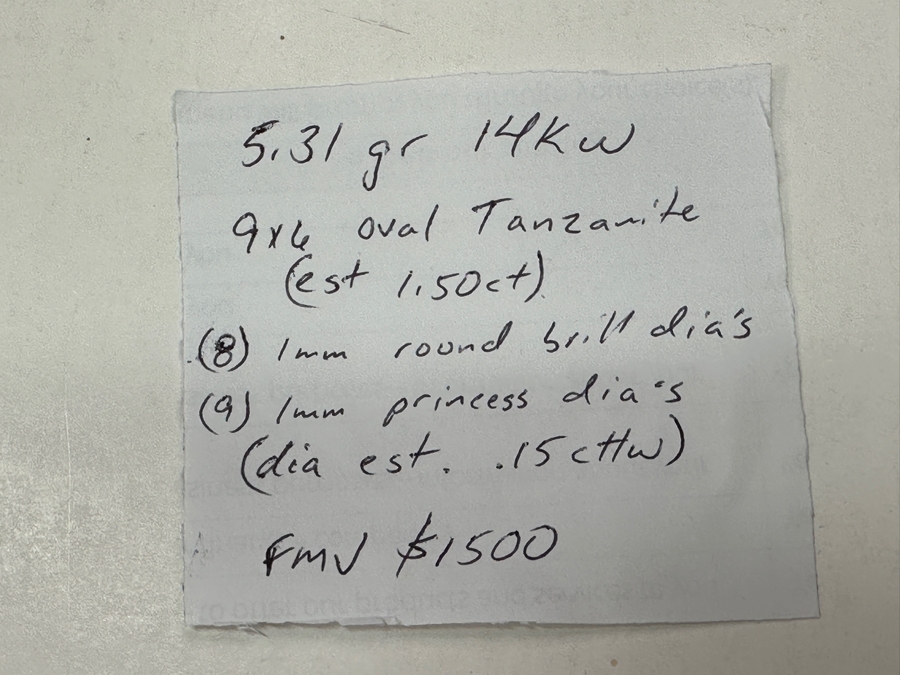 5.31 gr 14KW
9x6 oval Tanzanite
(est 1.50ct)
(8) 1mm round brill dia's
(9) 1mm princess dia's
(dia est. .15 cttw)
FMV $1500